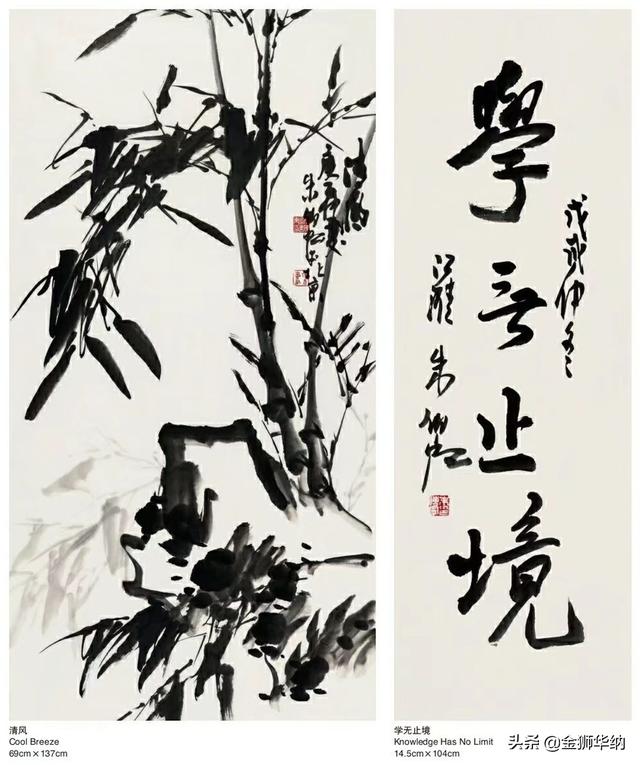 清風
學無止境
戊戌仲冬
清风
Cool Breeze
69cm×137cm
学无止境
Knowledge Has No Limit
14.5cm×104cm
头条 @金狮华纳